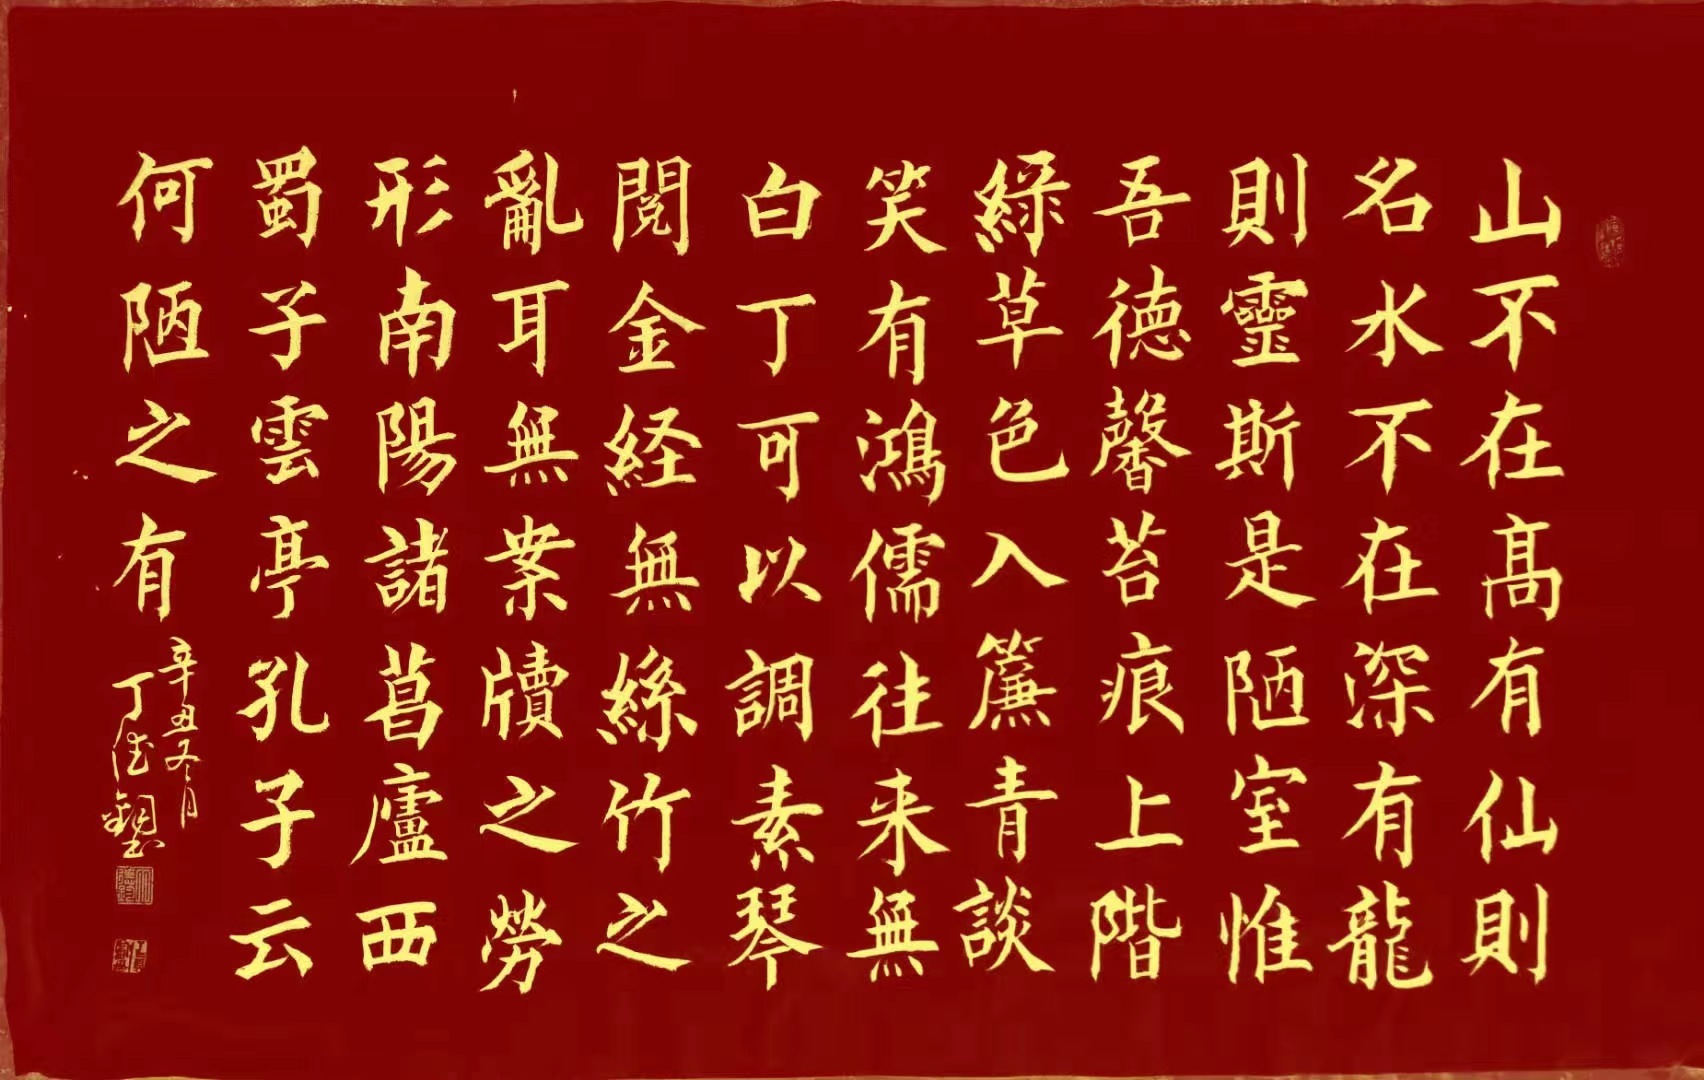 山不在髙有仙則
名水不在深有龍
則靈斯是陋室惟
吾德馨苔痕上階
綠草色入簾青談
笑有鴻儒往来無
白丁可以調素琴
閲金経無絲竹之
亂耳無案牘之勞
形南陽諸葛廬西
蜀子雲亭孔子云
何陋之有
辛丑冬月
丁德